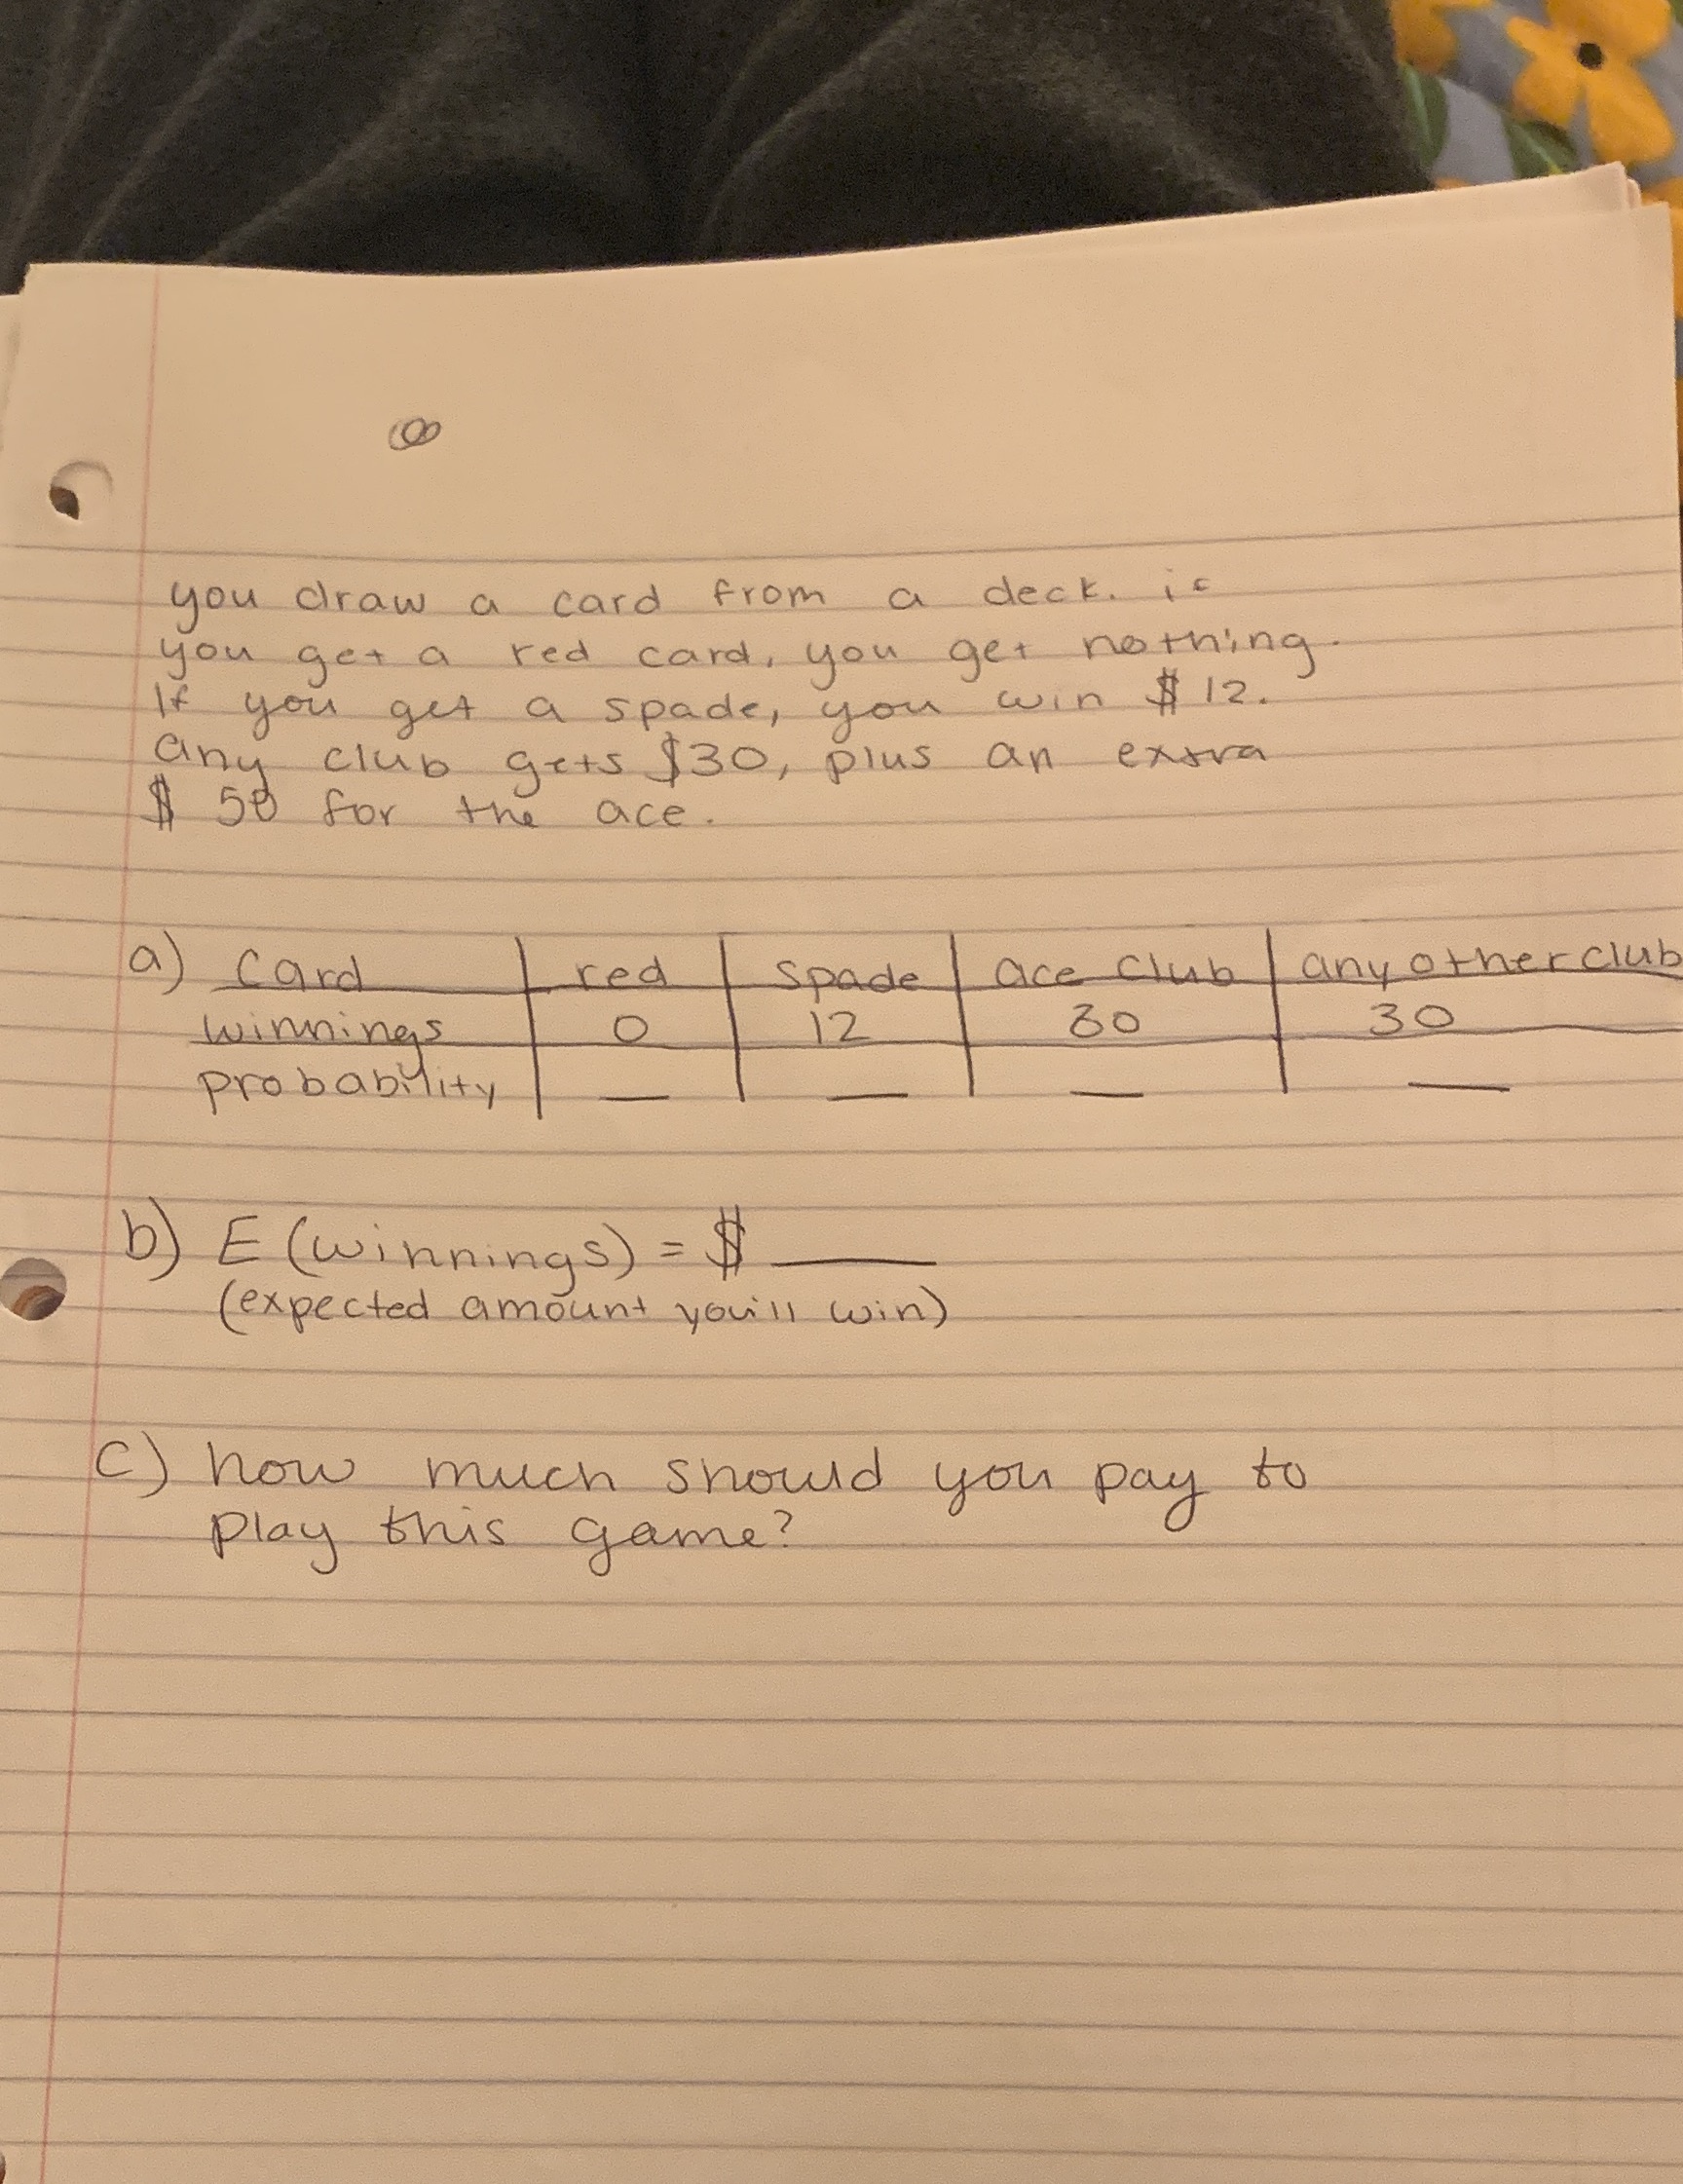 you draw a card from a deck. if
you get a red card, you get nothing.
If you get a spade, you win $12.
any club gets $30, plus an extra
$ 50 for the ace.
a) Card | red | spade | ace club | any other club
winnings | 0 | 12 | 80 | 30
probability | __ | __ | __ | __
b) E (winnings) = $ ____
(expected amount you'll win)
c) how much should you pay to
play this game?